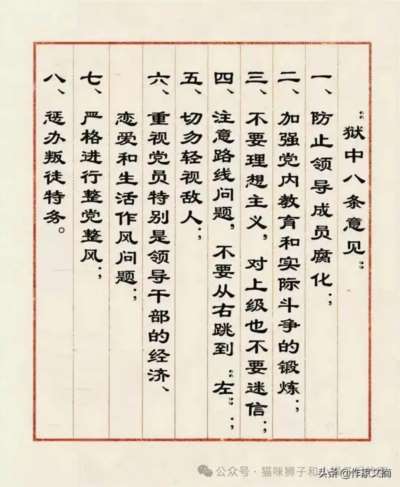 “狱中八条意见”
一、防止领导成员腐化；
二、加强党内教育和实际斗争的锻炼；
三、不要理想主义，对上级也不要迷信；
四、注意路线问题，不要从右跳到“左”；
五、切勿轻视敌人；
六、重视党员特别是领导干部的经济、
恋爱和生活作风问题；
七、严格进行整党整风；
八、惩办叛徒特务。
公众号·猫咪狮子和
头条@作家文摘